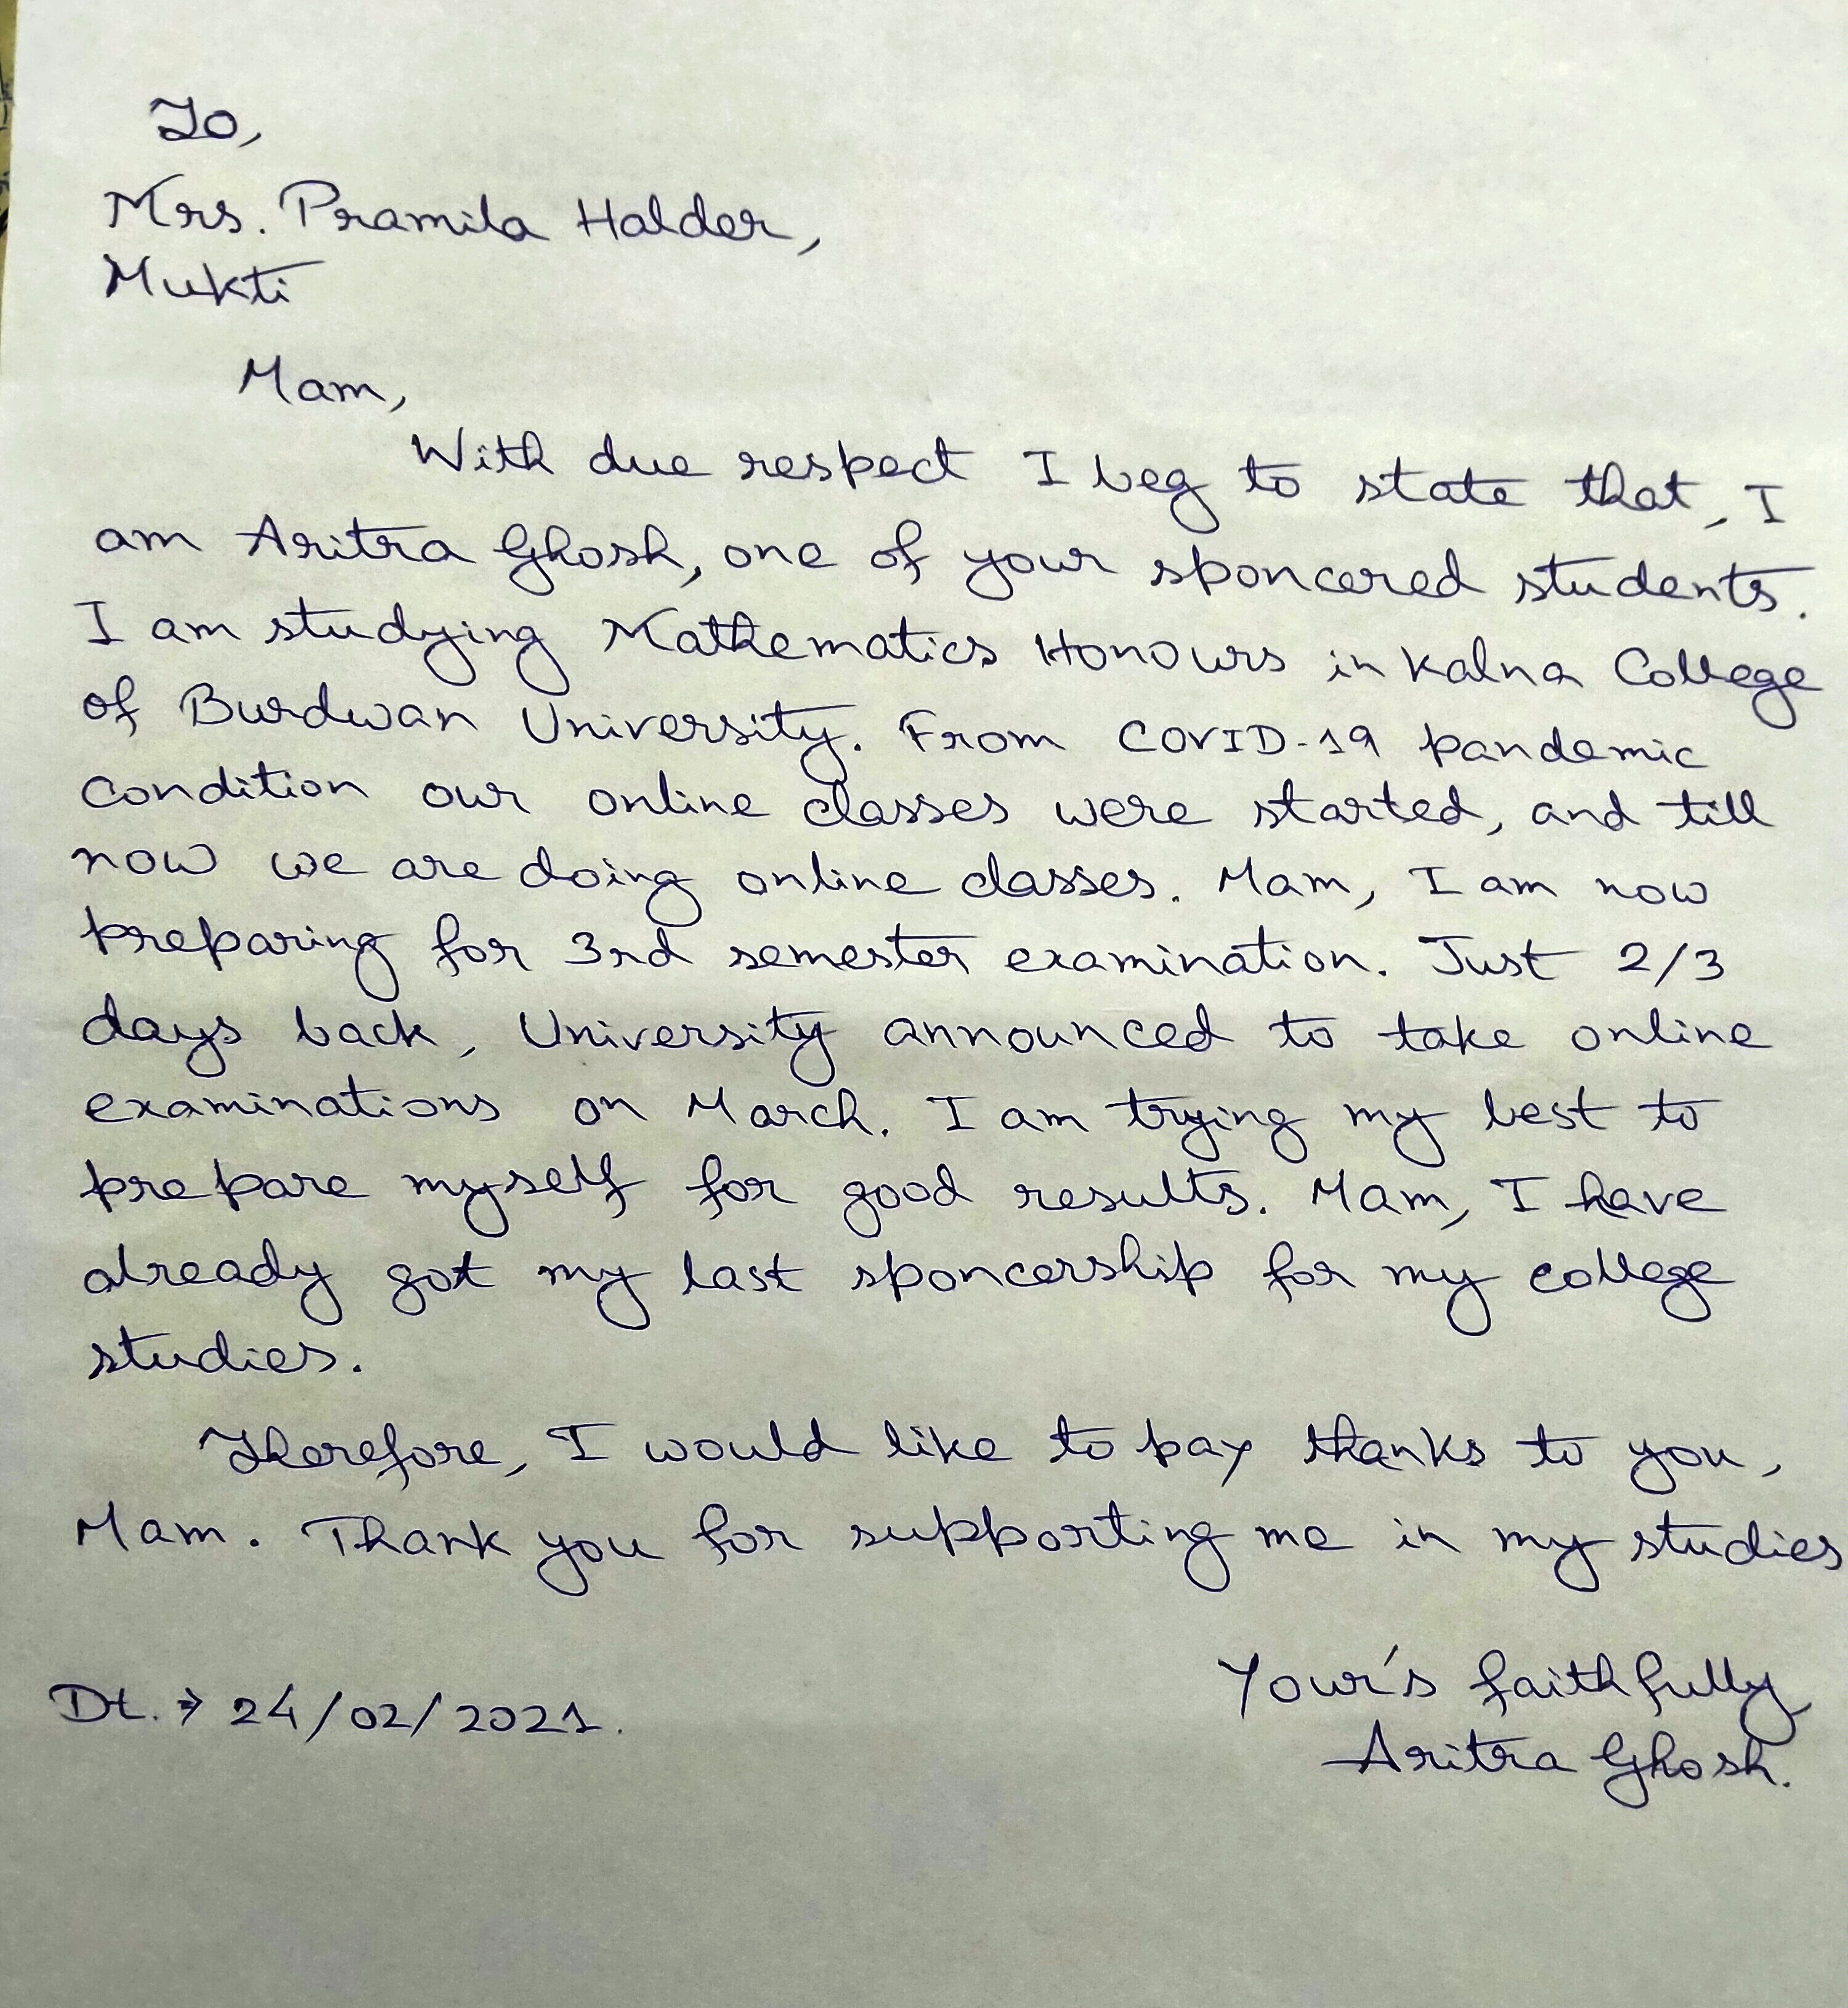 To,
Mrs. Pramila Halder,
Mukti
Mam,
With due respect I beg to state that, I
am Aritra Ghosh, one of your sponcered students.
I am studying Mathematics Honours in Kalna College
of Burdwan University. From COVID-19 pandemic
condition our online classes were started, and till
now we are doing online classes. Mam, I am now
preparing for 3rd semester examination. Just 2/3
days back, University announced to take online
examinations on March. I am trying my best to
prepare myself for good results. Mam, I have
already got my last sponcership for my college
studies.
Therefore, I would like to pay thanks to you,
Mam. Thank you for supporting me in my studies
Your's faithfully
Dt. → 24/02/2021.
Aritra Ghosh.